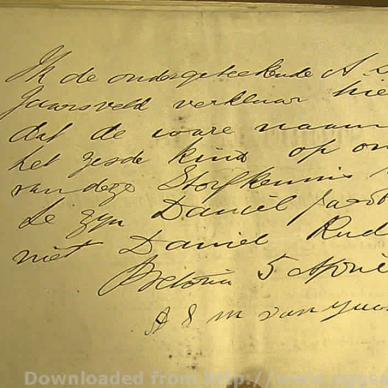 Ik de ondergeteekende A
Jaarsveld verklaar hie
dat de ware naam
het zesde kind op on
van deze Sterfkennis
te zijn Daniël Jacob
niet Daniel Rud
Pretoria 5 April
A S M van Jaa
Downloaded from http://